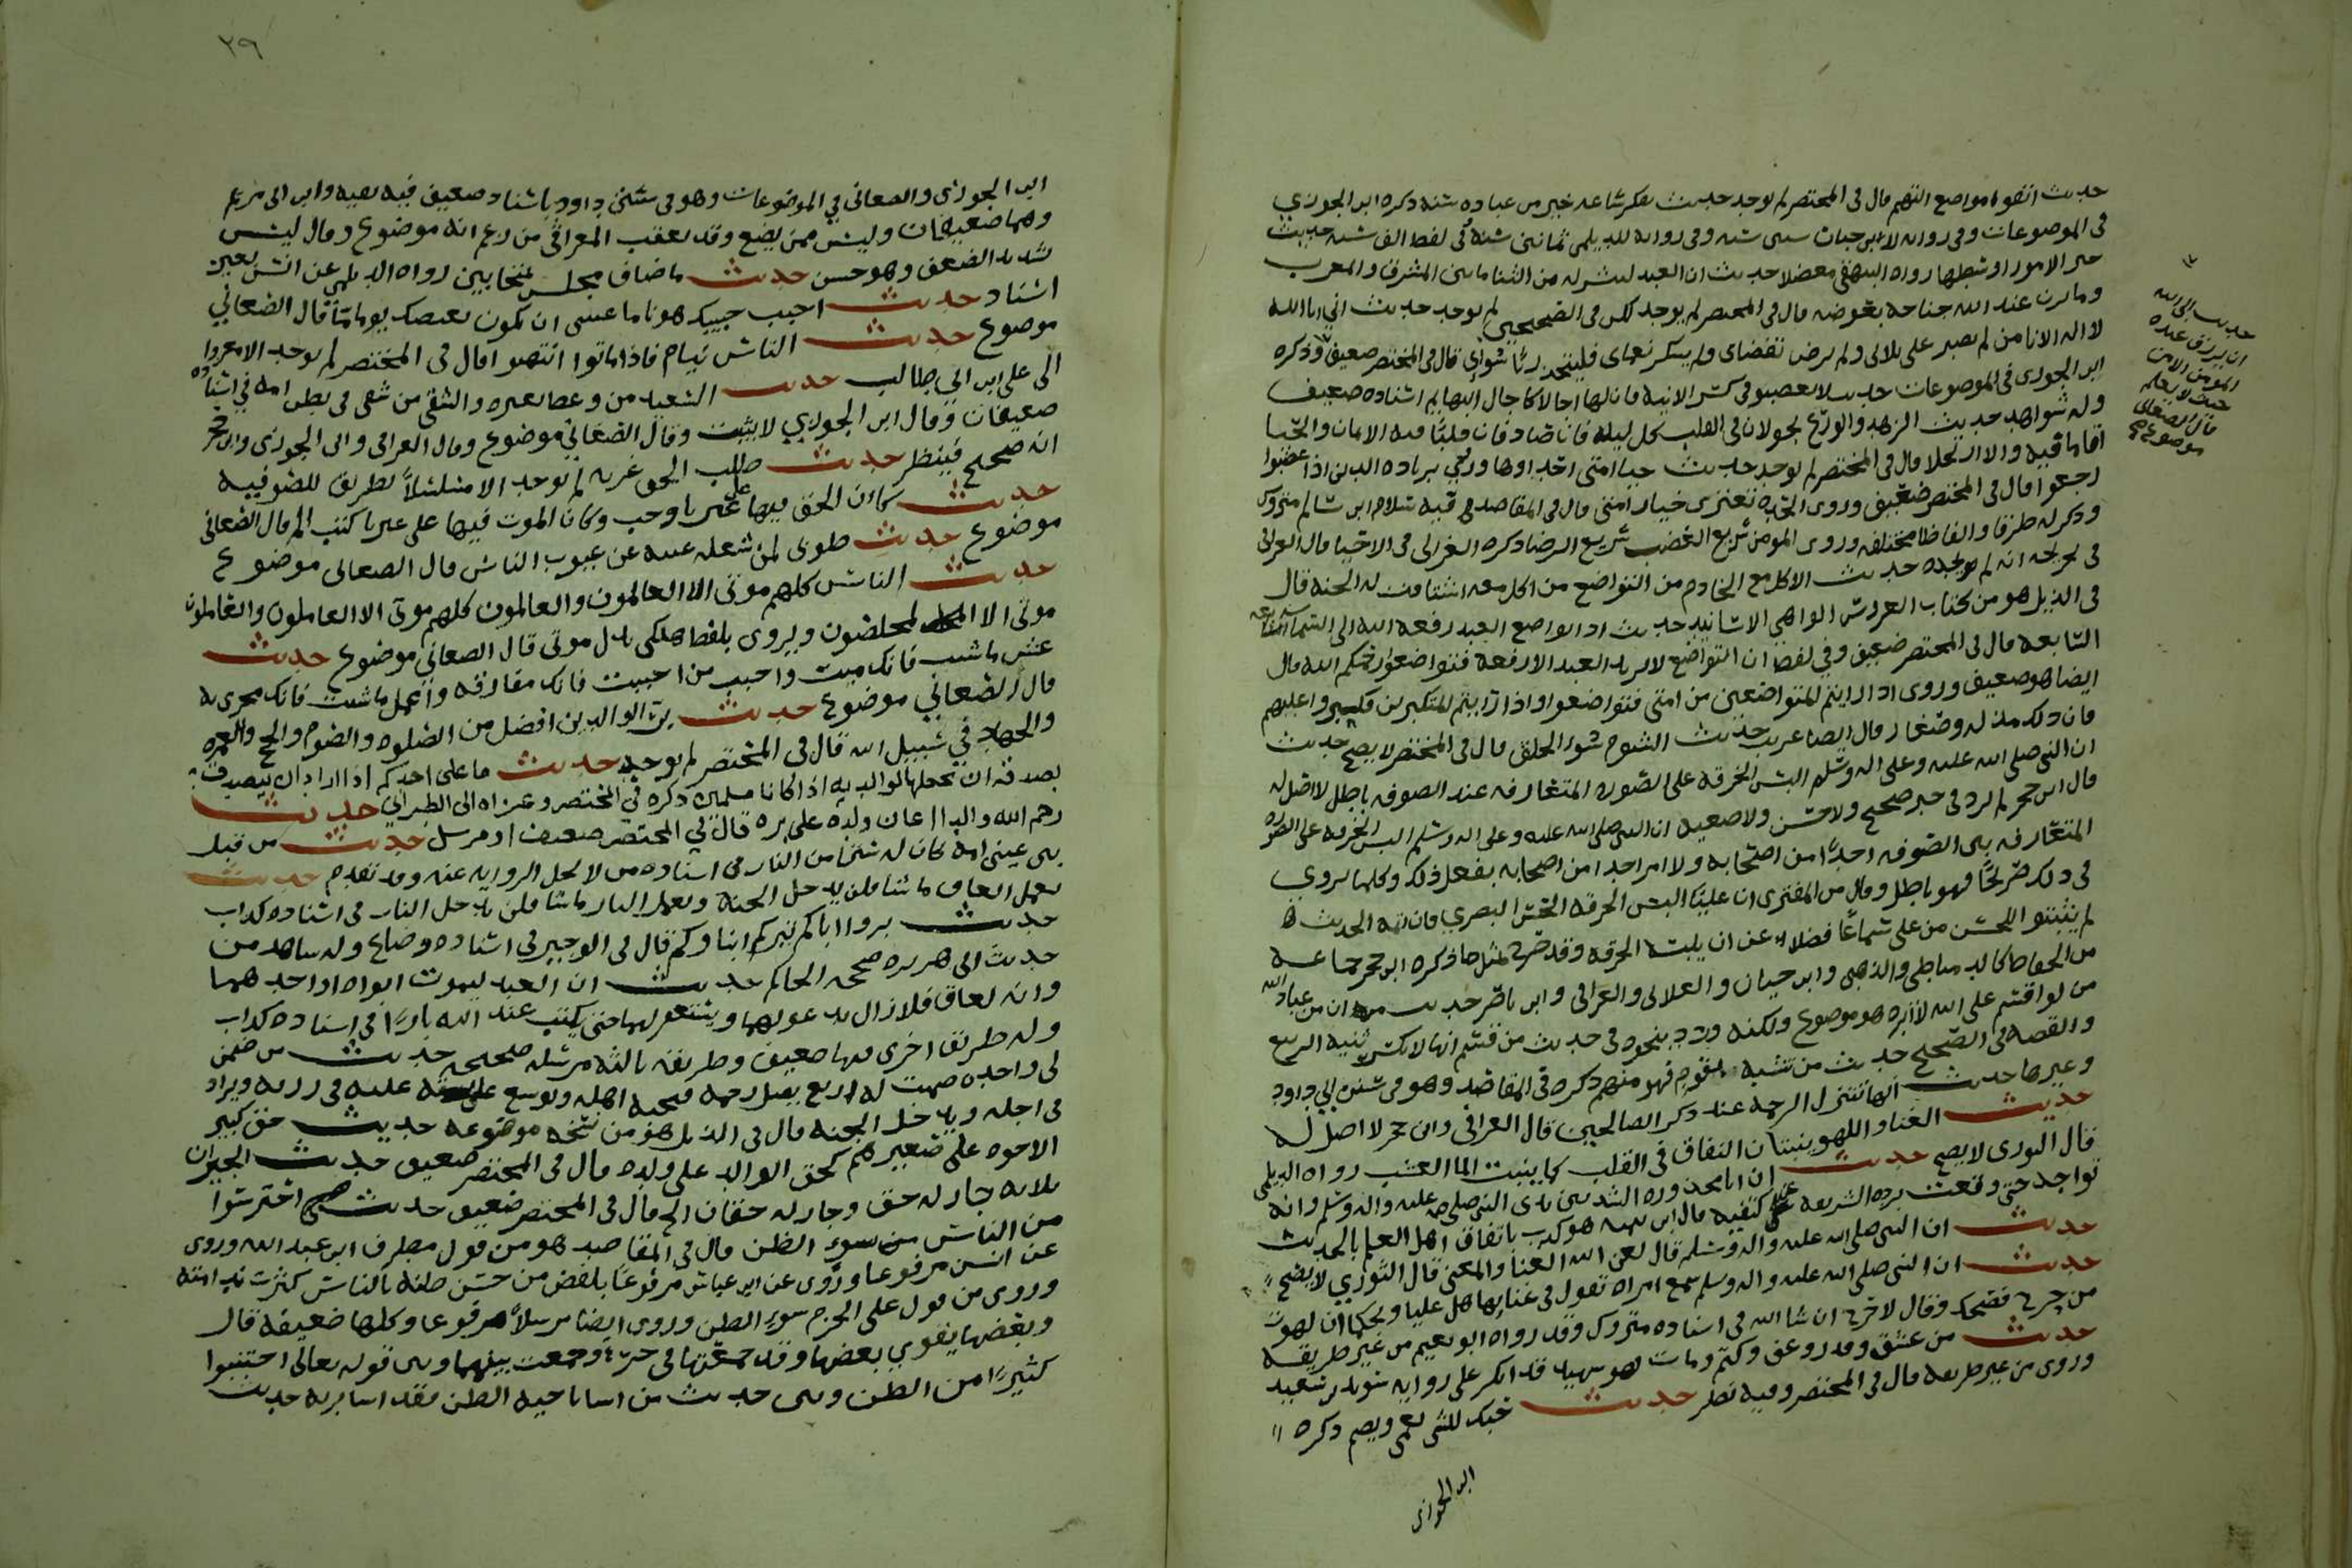 حديث اتقوا مواضع التهم قال فى المختصر لم يوجد حديث تفكر ساعه خير من عباده سنه ذكره ابن الجوزي
فى الموضوعات وفى روايه لابن حبان ستين سنه وفى روايه للديلمي ثمانين سنة فى لفظ الف سنه حديث
خير الامور اوسطها رواه البيهقي معضلا حديث ان العبد لينشر له من الثنا مابين المشرق والمغرب
وما يزن عند الله جناحه بعوضه قال فى المختصر لم يوجد لكن فى الصحيحين لم يوجد حديث انى انا الله
لا اله الا انا من لم يصبر على بلائى ولم يرض بقضاى ولم يشكر نعماى فليتخذ ربا سواي قال فى المختصر ضعيف وذكره
ابن الجوزى فى الموضوعات حديث لا تغضبوا فى كسر الانيه فان لها اجالا كاجال ابهايم اسناده ضعيف
وله شواهد حديث الزهد والورع يجولان فى القلب كل ليله فان صادفا قلبا فيه الايمان والحيا
اقاما فيه والا ارتحلا قال فى المختصر لم يوجد حديث خيار امتى احداوها وروي بزياده الذين اذا غضبوا
رجعوا قال فى المختصر ضعيف وروى الحده تعتري خيار امتى قال فى المقاصد فيه سلام ابن سالم متروك
وذكر له طرقا والفاظا مختلفه وروى المومن سريع الغضب سريع الرضا ذكره الغزالى فى الاحيا قال العراقى
فى تخريجه انه لم يجده حديث الاكل مع الخادم من التواضع من اكل معه اشتاقت له الجنه قال
فى الذيل هو من كتاب العروس الواهي الاسانيد حديث اذا تواضع العبد رفعه الله الى السما السابعه
السابعه قال فى المختصر ضعيف وفي لفظ ان التواضع لا يزيد العبد الا رفعة فتواضعوا يرحمكم الله قال
ايضا هو ضعيف وروى اذا رايتم المتواضعين من امتى فتواضعوا واذا رايتم المتكبرين فتكبروا عليهم
فان ذلك مذله وصغار قال ايضا غريب حديث الشوم سو الخلق قال فى المختصر لا يصح حديث
ان النبى صلى الله عليه وعلى اله وسلم البس الخرقه على الصوره المتعارفه عند الصوفه باطل لا اصل له
قال ابن حجر لم يرد فى خبر صحيح ولا حسن ولا ضعيف ان النبى صلى الله عليه وعلى اله وسلم البس الخرقه على الصوره
المتعارفه بين الصوفه احدا من اصحابه ولا امر احدا من اصحابه بفعل ذلك وكلما يروي
فى ذلك صريحا فهو باطل وقال من المفترى ان عليا البس الخرقه الحسن البصري فان ائمه الحديث
لم يثبتوا للحسن من على سماعا فضلا عن ان يلبسه الخرقه وقد صرح بمثل ما ذكره ابن حجر جماعه
من الحفاظ كالدمياطى والذهبى وابن حبان والعلائى والعراقى وابن ناصر حديث ان من عباد الله
من لو اقسم على الله لابره هو موضوع ولكنه ورد بنحوه فى حديث من قسم انها لا تكسر ثنيه الربيع
والقصه فى الصحيح حديث من تشبه بقوم فهو منهم ذكره فى المقاصد وهو فى سنن ابي داود
وغيرها حديث انها تتنزل الرحمه عند ذكر الصالحين قال العراقى وابن حجر لا اصل له
حديث الغنا واللهو ينبتان النفاق فى القلب كما ينبت الما العشب رواه الديلمى
قال النووى لا يصح حديث ان ابا محذوره انشد بين يدى النبى صلى الله عليه واله وسلم وانه
تواجد حتى وقعت برده الشريعه عن كتفيه قال ابن تيميه هو كذب باتفاق اهل العلم بالحديث
حديث ان النبى صلى الله عليه واله وسلم قال لعن الله الغنا والمغنى قال النووي لا يصح
حديث ان النبى صلى الله عليه واله وسلم سمع امراه تقول فى غنايها هل عليا ويحكما ان لهوت
من حرج فضحك وقال لا حرج ان شا الله فى اسناده متروك وقد رواه ابو نعيم من غير طريقه
حديث من عشق وعف وكتم ومات فهو شهيد قد انكر على روايه سويد بن سعيد
وروى من غير طريقه قال فى المختصر وفيه نظر حديث حبك للشى يعمى ويصم ذكره
ابن الجوزى
حديث ابى الله
ان يرزق عبده
المومن الا من
حيث لا يعلم
قال الصغانى
موضوع
٢٩
ابن الجوزى والصغانى في الموضوعات وهو فى سنن داود باسناد ضعيف فيه بقيه وابن ابى مريم
وهما ضعيفان وليس ممن يضع وقد تعقب العراقي من زعم انه موضوع وقال ليس
شديد الضعف وهو حسن حديث ما ضاق مجلس بمتحابين رواه الديلمي عن انس بغير
اسناد حديث احبب حبيبك هونا ما عسى ان يكون بغيضك يوما ما قال الصغاني
موضوع حديث الناس نيام فاذا ماتوا انتبهوا قال فى المختصر لم يوجد الا معزوا
الى على ابن ابي طالب حديث السعيد من وعظ بغيره والشقى من شقى فى بطن امه في اسناده
ضعيفان وقال ابن الجوزي لا يثبت وقال الصغاني موضوع وقال العراقى وابن الجوزى وابن حجر
انه صحيح فينظر حديث طلب الحق غربه لم يوجد الا مسلسلا بطريق للصوفيه
حديث كأن الحق فيها على غيرنا وجب وكان الموت فيها على غيرنا كتب الخ قال الصغانى
موضوع حديث طوبى لمن شغله عيبه عن عيوب الناس قال الصغانى موضوع
حديث الناس كلهم موتى الا العالمون والعالمون كلهم موتى الا العاملون والعاملون
موتى الا المخلصون ويروى بلفظ هلكى بدل موتى قال الصغاني موضوع حديث
عش ما شيت فانك ميت واحبب من احببت فانك مفارقه واعمل ما شيت فانك مجزى به
قال الصغاني موضوع حديث بر الوالدين افضل من الصلوه والصوم والحج والعمره
والجهاد في سبيل الله قال فى المختصر لم يوجد حديث ما على احدكم اذا اراد ان يتصدق
بصدقه ان يجعلها لوالديه اذا كانا مسلمين ذكره في المختصر وعزاه الى الطبراني حديث
رحم الله والدا اعان ولده على بره قال في المختصر ضعيف او مرسل حديث من قبل
بين عينى امه كان له سترا من النار فى اسناده من لا تحل الروايه عنه وقد تقدم حديث
يعمل العاق ما شا فلن يدخل الجنه ويعمل البار ما شا فلن يدخل النار فى اسناده كذاب
حديث بروا اباكم تبركم ابناوكم قال فى الوجيز فى اسناده وضاع وله شاهد من
حديث ابى هريره صححه الحاكم حديث ان العبد ليموت ابواه او احدهما
وانه لعاق فلا زال يدعو لهما ويستغفر لهما حتى يكتب عند الله بارا فى اسناده كذاب
وله طريق اخرى فيها ضعيف وطريق ثالثه مرسله صحيحه حديث من ضمن
لى واحده ضمنت له اربع يصل رحمه فيحبه اهله ويوسع عليه فى رزقه ويزاد
فى اجله ويدخل الجنه قال فى الذيل هو من نسخه موضوعه حديث حق كبير
الاخوه على صغيرهم كحق الوالد على ولده قال فى المختصر ضعيف حديث الجيران
ثلاثه جار له حق وجار له حقان الخ قال فى المختصر ضعيف حديث احترسوا
من الناس بسوء الظن قال في المقاصد هو من قول مطرف ابن عبد الله وروى
عن انس مرفوعا وروى عن ابن عباس مرفوعا بلفظ من حسن ظنه بالناس كثرت ندامته
وروى من قول على الحزم سوء الظن وروى ايضا مرسلا مرفوعا وكلها ضعيفه قال
وبعضها يقوي بعضها وقد جمعتها فى جزء وجمعت بينهما وبين قوله تعالى اجتنبوا
كثيرا من الظن وبين حديث من اسا باخيه الظن فقد اسا بربه حديث